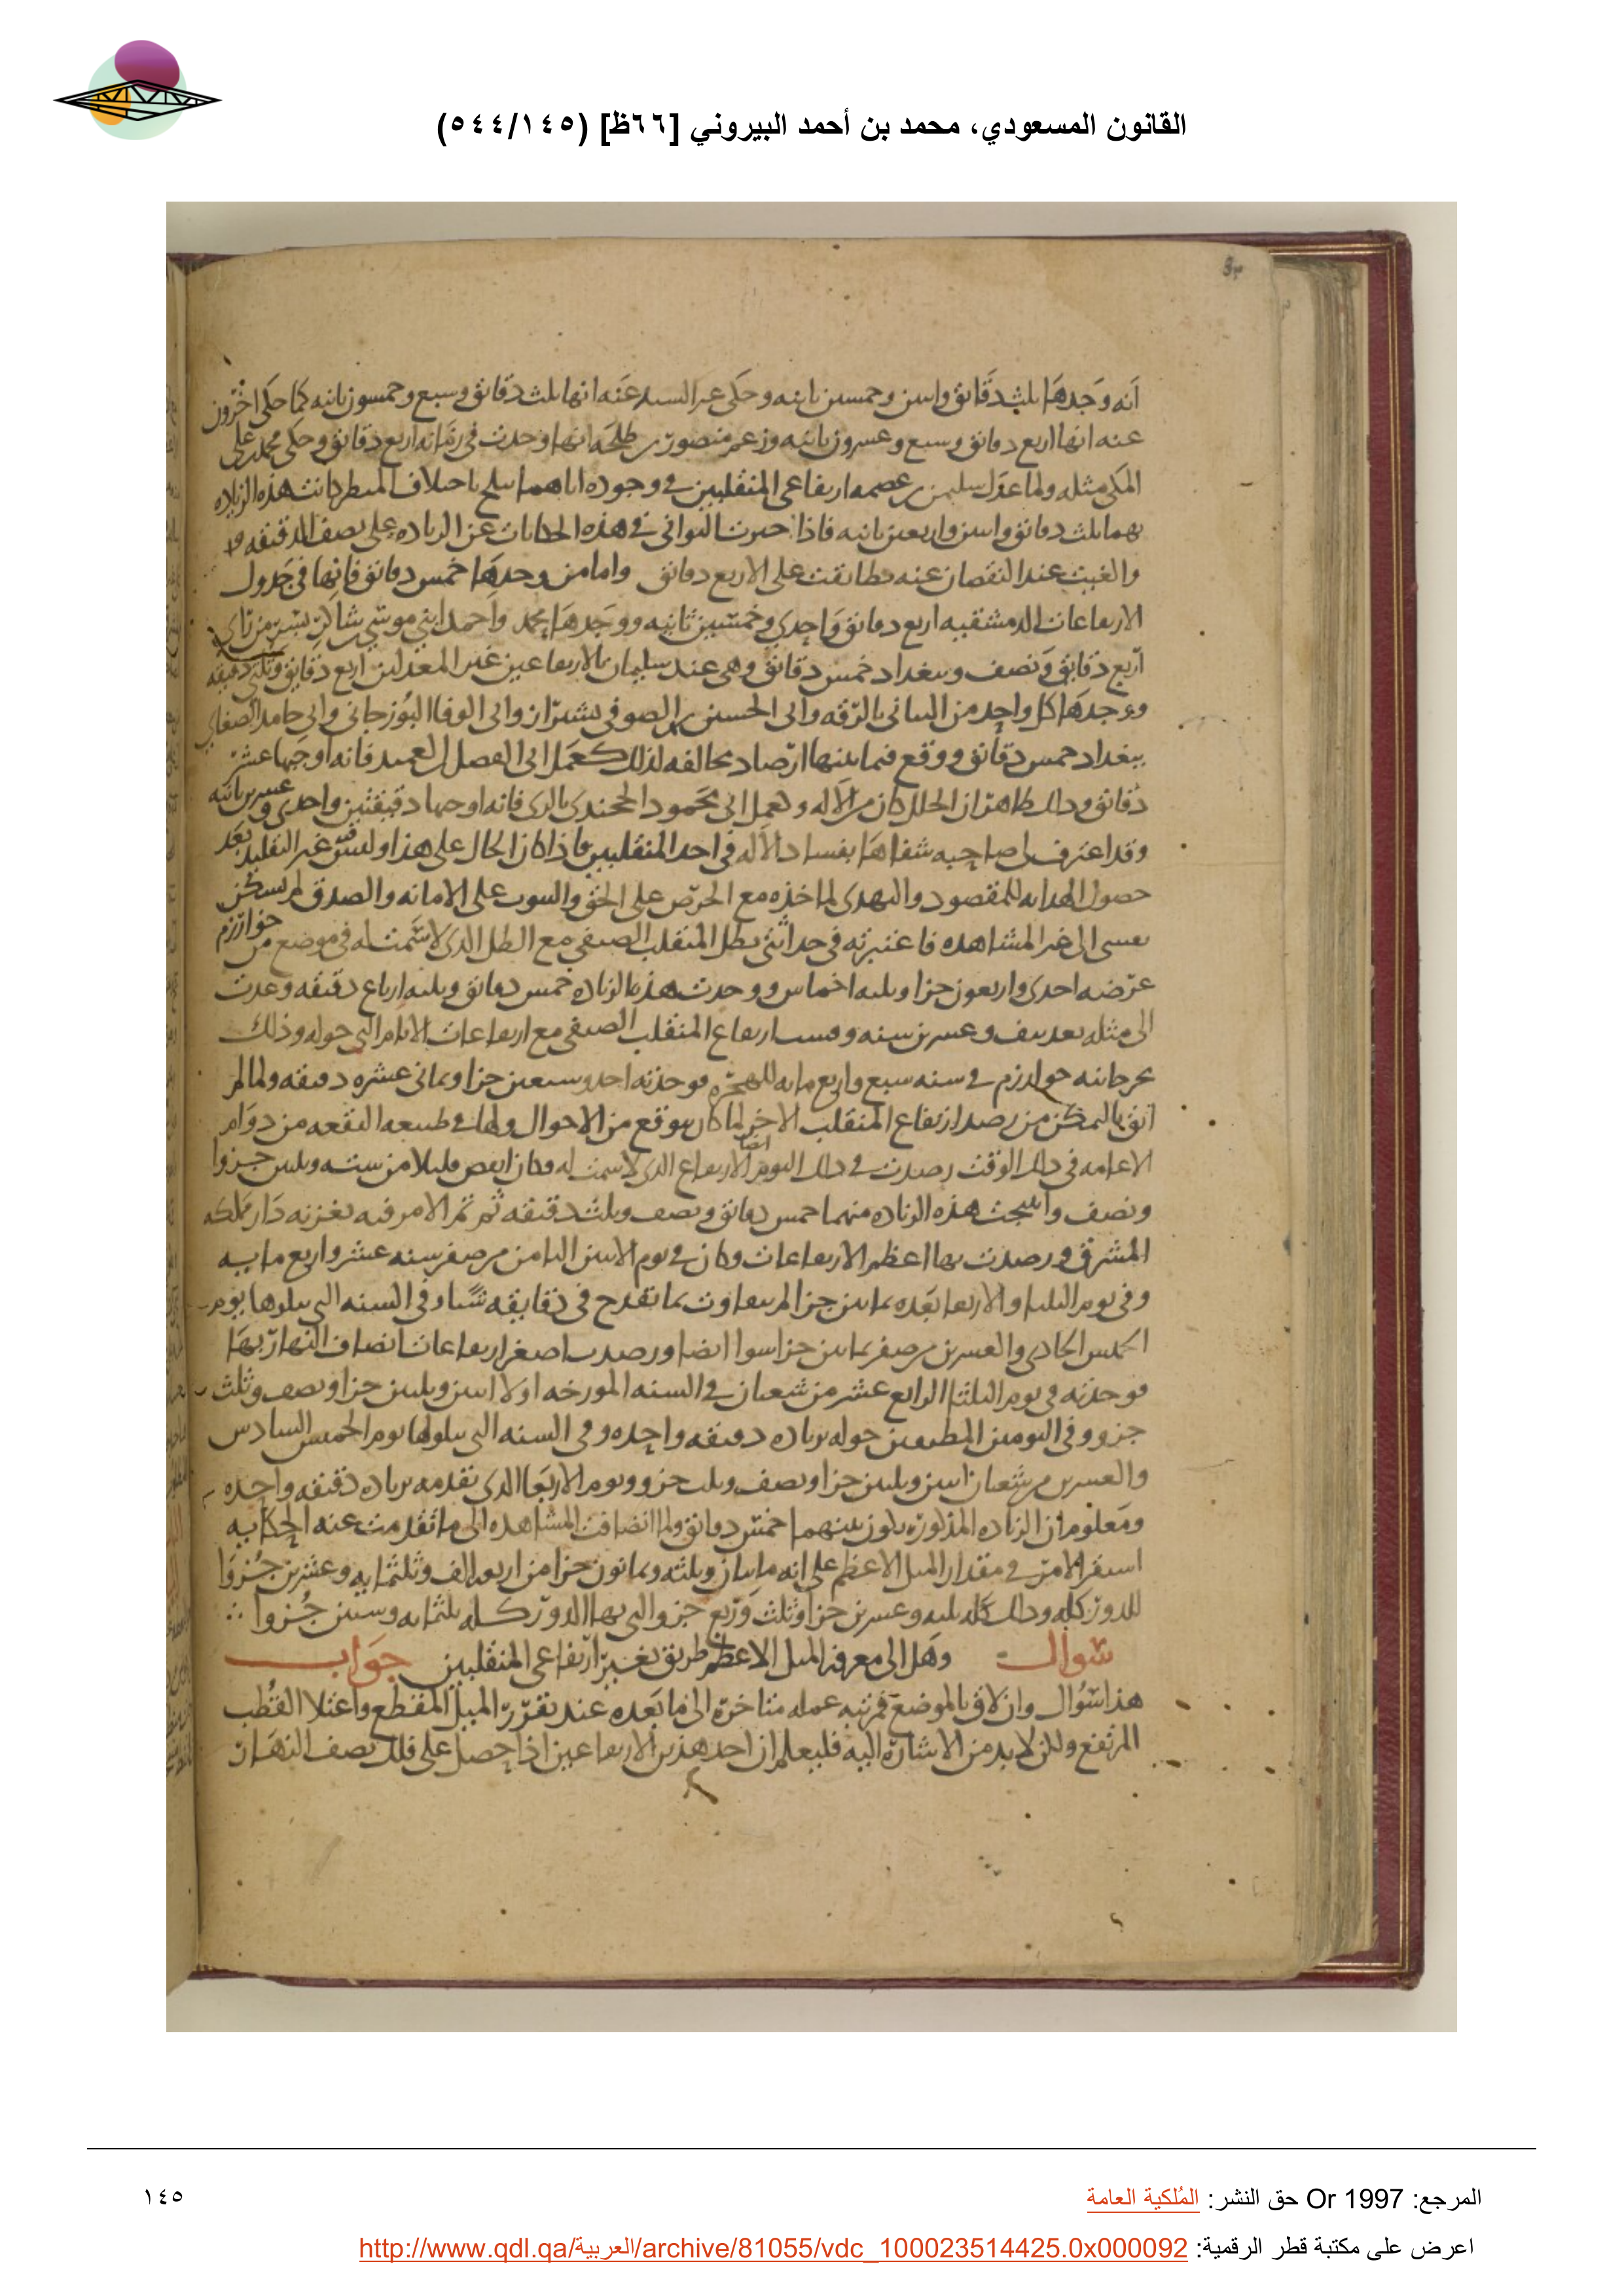 القانون المسعودي، محمد بن أحمد البيروني [٦٦ظ] (٥٤٤/١٤٥)
انه وجدها ثلث دقائق واسن وخمسين ثانيه وحكى عنه انها ثلث دقائق وسبع وخمسون ثانيه كما حكى اخرون
عنه انها اربع دقائق وسبع وعسرون ثانيه وزعم منصور بن طلحه انها وجدت في زمانه اربع دقائق وحكى محمد بن على
المكى مثله ولما عدل سليمن بن عصمه ارتفاعى المنقلبين فى وجوده اياهما ببلخ باختلاف المنظر كانت هذه الزياده
بهما ثلث دقائق واسن واربعين ثانيه فاذا جبرت الثوانى فى هذه الحكايات عن الزياده على نصف الدقيقه
والغيت عند النقصان عنه تطابقت على الاربع دقائق واما من وجدها خمس دقائق فانها فى جدول
الارتفاعات الدمشقيه اربع دقائق واحدى وخمسين ثانيه ووجدها محمد واحمد ابنى موسى بن شاكر بسر من راى
اربع دقايق ونصف وببغداد خمس دقائق وهى عند سليمان بالارتفاعين غير المعدلين اربع دقايق وثلثى دقيقه
ووجدها كل واحد من البتانى بالرقه وابى الحسين بن الصوفى بشيراز وابى الوفا البوزجانى وابى حامد الصغانى
ببغداد خمس دقائق ووقع فيما بينها ارصاد مخالفه لذلك كعمل ابى الفضل بن العميد فانه اوجبها عشر
دقائق وذلك ظاهر ان الخلل كان من الاله وكعمل ابى محمود الخجندى بالرى فانه اوجبها دقيقتين واحدى وعسرين ثانيه
وقد اعترف لى صاحبه شفاها بفساد الاله فى احد المنقلبين فاذا كان الحال على هذا وليس غير التقليد بعد
حصول الهدايه للمقصود والتهدى لماخذه مع الحرص على الحق والثبوت على الامانه والصدق لم تسكن
نفسى الى غير المشاهده فاعتبرته فى حداثتى بظل المنقلب الصيفى مع الظل الذى لا سمت له فى موضع من خوارزم
عرضه احدى واربعون جزا وثلثه اخماس ووجدت هذه الزياده خمس دقائق وثلثه ارباع دقيقه وعدت
الى مثله بعد نيف وعسرين سنه وقست ارتفاع المنقلب الصيفى مع ارتفاعات الايام التى حوله وذلك
بجرجانيه خوارزم فى سنه سبع واربع مايه للهجره فوجدته احد وسبعين جزا وثمانى عشره دقيقه ولما لم
اثق بالتمكن من رصد ارتفاع المنقلب الاخر لما كان يتوقع من الاحوال ولما فى طبيعه البقعه من دوام
الاغامه فى ذلك الوقت رصدت فى ذلك اليوم ايضا الارتفاع الذى لا سمت له وكان انقص قليلا من سته وثلثين جزوا
ونصف وانتجت هذه الزياده منهما خمس دقائق ونصف وثلث دقيقه ثم تم الامر فيه بغزنه دار مملكه
المشرق ورصدت بها اعظم الارتفاعات وكان فى يوم الاثنين الثامن من صفر سنه عشر واربع مايه
وفى يوم الثلثا والاربعا بعده ثمانين جزا لم يتفاوت بما تقدح فى دقايقه شيا وفى السنه التى تتلوها يوم
الخميس الحادى والعسرين من صفر ثمانين جزا سوا ايضا ورصدت اصغر ارتفاعات انصاف النهار بها
فوجدته فى يوم الثلثا الرابع عشر من شعبان فى السنه المورخه اولا اثنين وثلثين جزا ونصف وثلث
جزو وفى اليومين المطيفين حوله بزياده دقيقه واحده وفى السنه التى تتلوها يوم الخميس السادس
والعسرين من شعبان اثنين وثلثين جزا ونصف وثلث جزو ويوم الاربعا الذى تقدمه بزياده دقيقه واحده
ومعلوم ان الزياده المذكوره تكون بينهما خمس دقائق ولما انضافت المشاهده الى ما تقدمت عنه الحكايه
استقر الامر فى مقدار الميل الاعظم على انه مايتان وثلثه وثمانون جزا من اربعه الف وثلثمايه وعشرين جزوا
للدور كله وذلك كله ثلثه وعسرين جزا وثلث وربع جزو التى بها الدور كله ثلثمايه وستين جزوا
سوال وهل الى معرفه الميل الاعظم طريق بغير ارتفاعى المنقلبين جواب
هذا سوال وان لاق بالموضع فمرتبه عمله متاخره الى ما بعده عند تقرر الميل المقطع واعتلا القطب
المرتفع ولكن لا بد من الاشاره اليه فليعلم ان احد هذين الارتفاعين اذا حصل على فلك نصف النهار
المرجع: Or 1997 حق النشر: المُلكية العامة
١٤٥
اعرض على مكتبة قطر الرقمية: http://www.qdl.qa/العربية/archive/81055/vdc_100023514425.0x000092